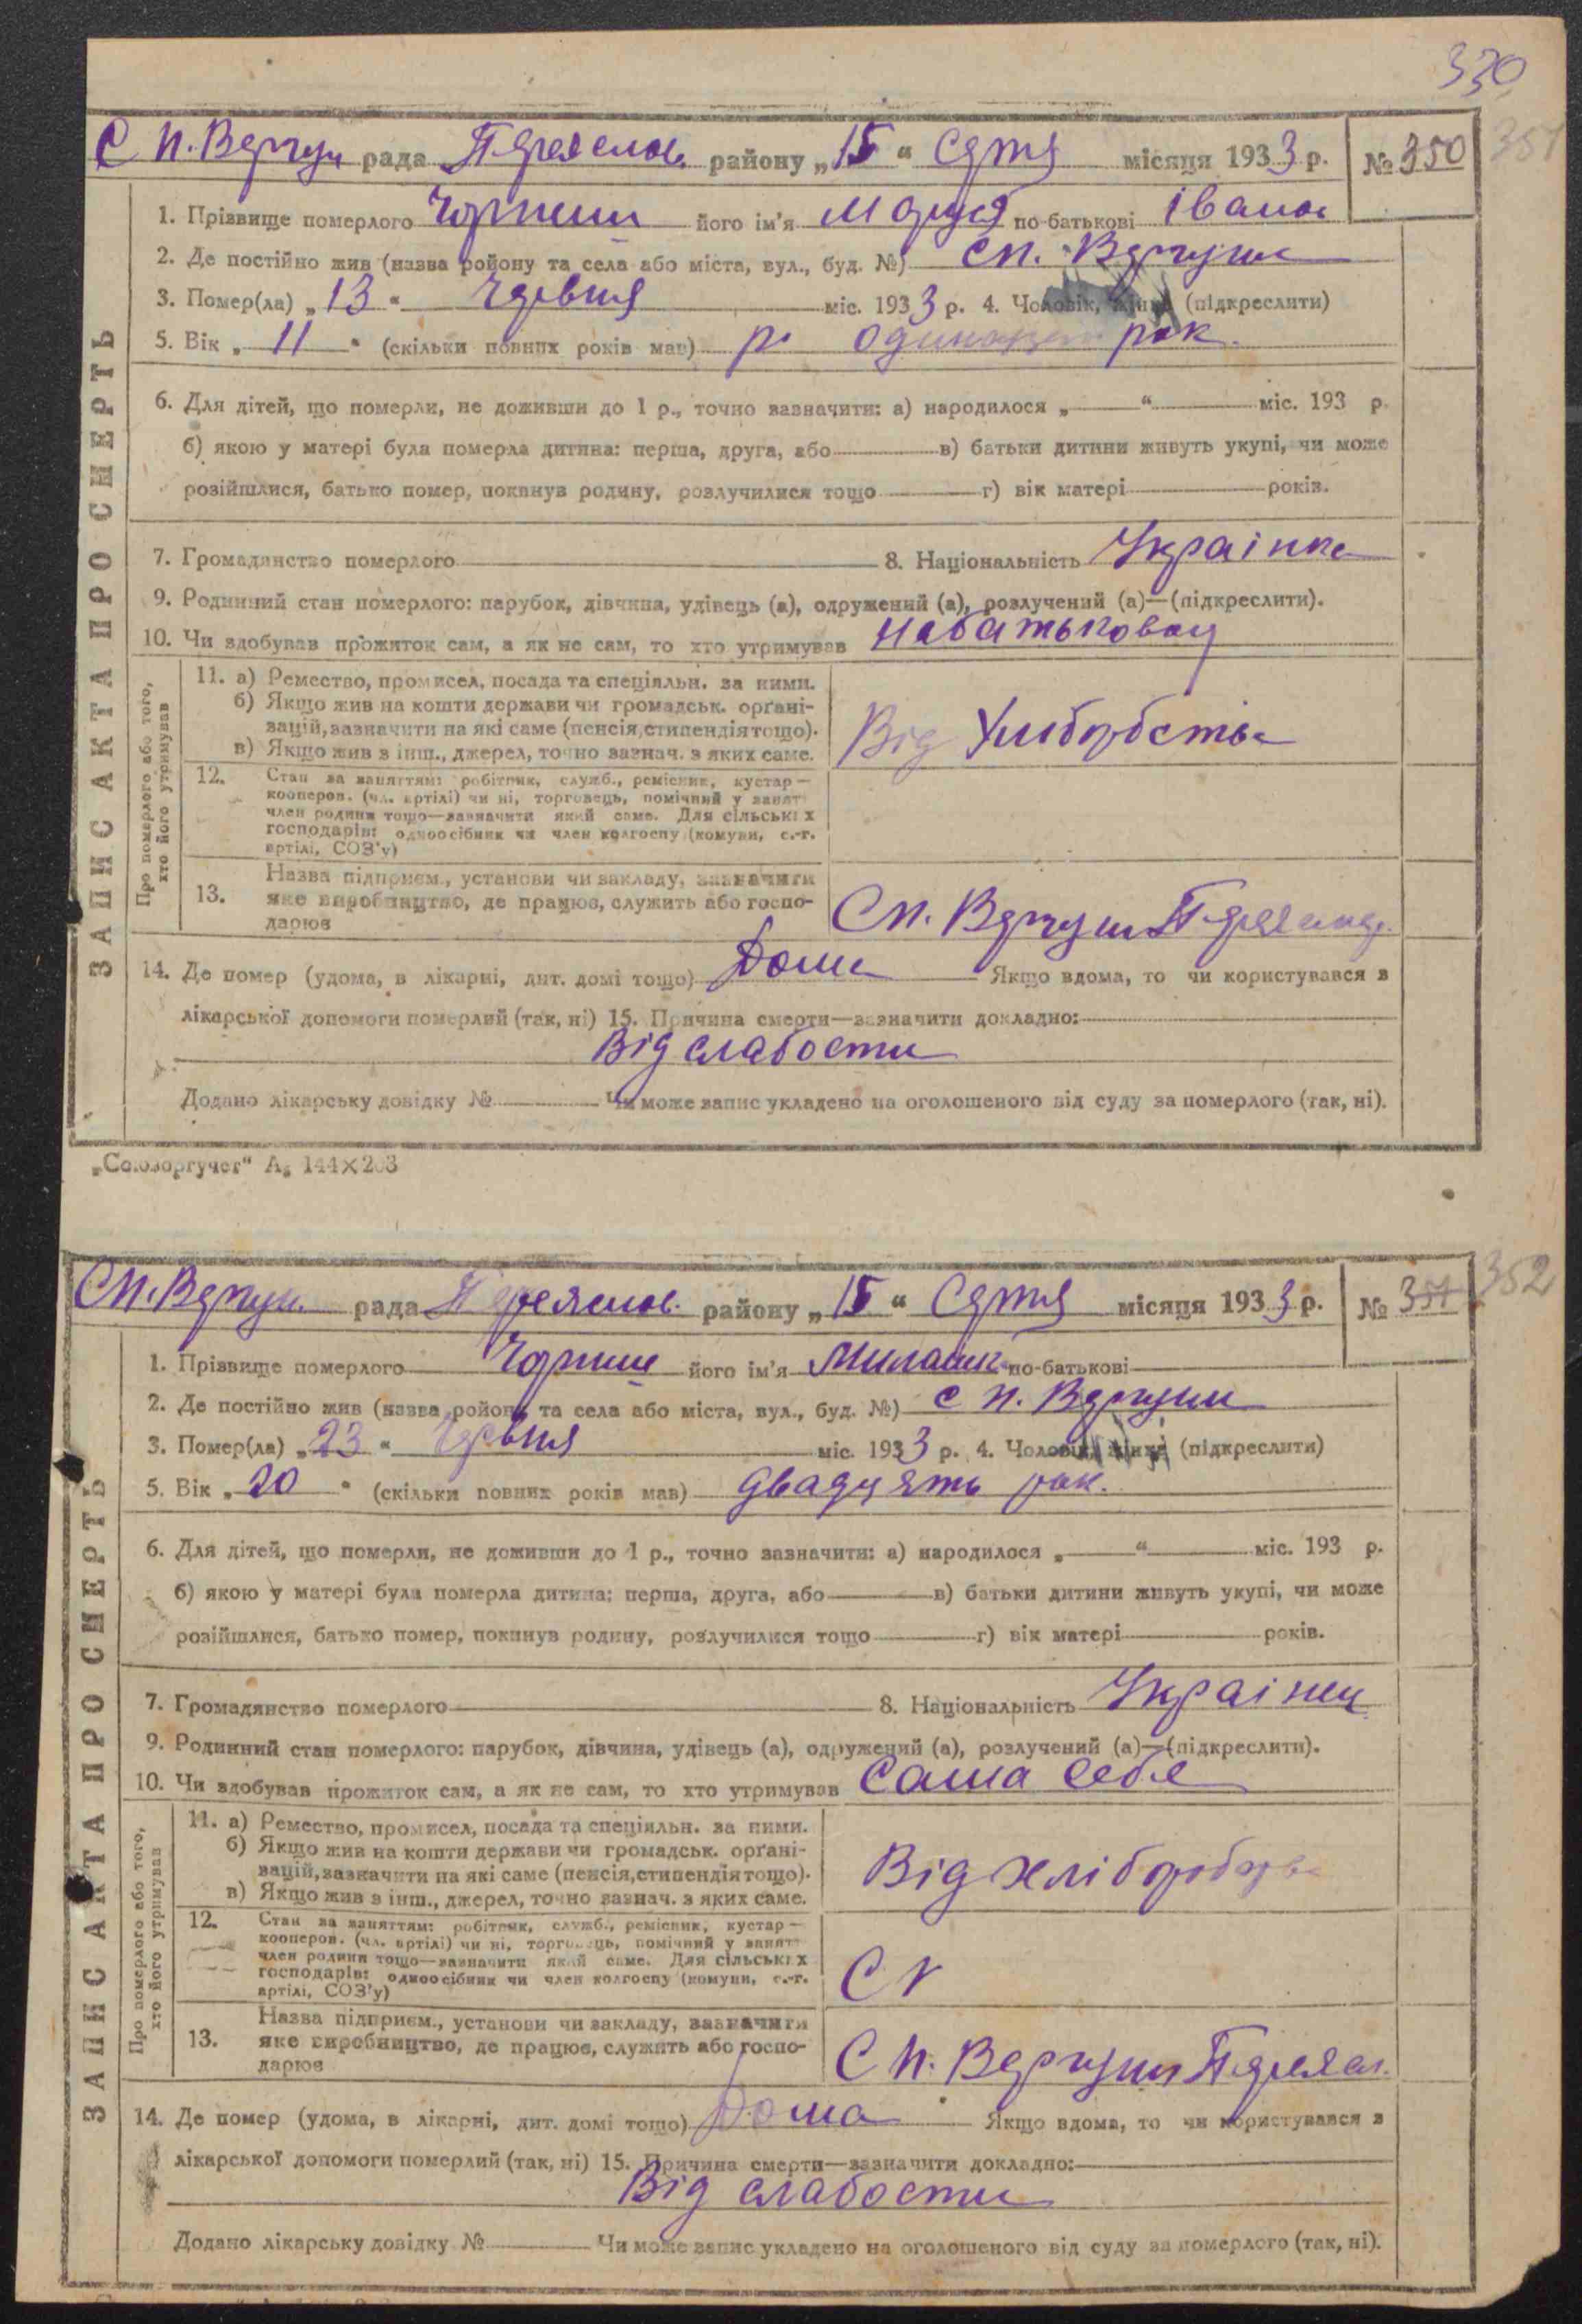 330
С П. Вергун рада Переяслов. району „15“ Серпя місяця 1933 р. № 350 351
ЗАПИС АКТА ПРО СМЕРТЬ
1. Прізвище померлого його ім'я Маруся по-батькові Іванов
2. Де постійно жив (назва ройону та села або міста, вул., буд. №) сп. Вергуни
3. Помер(ла) „13“ Червня міс. 1933 р. 4. Чоловік, жінка (підкреслити)
5. Вік „11“ (скільки повних років мав) рок.
6. Для дітей, що померли, не доживши до 1 р., точно зазначити: а) народилося „ “ міс. 193 р.
б) якою у матері була померла дитина: перша, друга, або в) батьки дитини живуть укупі, чи може
розійшлися, батько помер, покинув родину, розлучилися тощо г) вік матері років.
7. Громадянство померлого 8. Національність Українка
9. Родинний стан померлого: парубок, дівчина, удівець (а), одружений (а), розлучений (а)—(підкреслити).
10. Чи здобував прожиток сам, а як не сам, то хто утримував
Про померлого або того, хто його утримував
11. а) Ремество, промисел, посада та спеціяльн. за ними.
б) Якщо жив на кошти держави чи громадськ. орґані-
зацій, зазначити на які саме (пенсія, стипендія тощо).
в) Якщо жив з інш., джерел, точно зазнач. з яких саме.
Від
12. Стан за заняттям: робітник, служб., ремісник, кустар—
кооперов. (чл. артілі) чи ні, торговець, помічний у занят
член родини тощо—зазначити який саме. Для сільських
господарів: одноосібник чи член колгоспу (комуни, с.-г.
артілі, СОЗ'у)
13. Назва підприєм., установи чи закладу, зазначити
яке виробництво, де працює, служить або госпо-
дарює
Сп. Вергуни
14. Де помер (удома, в лікарні, дит. домі тощо) Дома Якщо вдома, то чи користувався з
лікарської допомоги померлий (так, ні) 15. Причина смерти—зазначити докладно:
Від слабости
Додано лікарську довідку № Чи може запис укладено на оголошеного від суду за померлого (так, ні).
„Союзоргучет“ А₅ 144×203
СП. Вергун. рада Переяслов. району „15“ Серпя місяця 1933 р. № 351 352
ЗАПИС АКТА ПРО СМЕРТЬ
1. Прізвище померлого його ім'я по-батькові
2. Де постійно жив (назва ройону та села або міста, вул., буд. №) с п. Вергуни
3. Помер(ла) „23“ Червня міс. 1933 р. 4. Чоловік, жінка (підкреслити)
5. Вік „20“ (скільки повних років мав) двадцять рок.
6. Для дітей, що померли, не доживши до 1 р., точно зазначити: а) народилося „ “ міс. 193 р.
б) якою у матері була померла дитина: перша, друга, або в) батьки дитини живуть укупі, чи може
розійшлися, батько помер, покинув родину, розлучилися тощо г) вік матері років.
7. Громадянство померлого 8. Національність Українец
9. Родинний стан померлого: парубок, дівчина, удівець (а), одружений (а), розлучений (а)—(підкреслити).
10. Чи здобував прожиток сам, а як не сам, то хто утримував Сама себе
Про померлого або того, хто його утримував
11. а) Ремество, промисел, посада та спеціяльн. за ними.
б) Якщо жив на кошти держави чи громадськ. орґані-
зацій, зазначити на які саме (пенсія, стипендія тощо).
в) Якщо жив з інш., джерел, точно зазнач. з яких саме.
Від
12. Стан за заняттям: робітник, служб., ремісник, кустар—
кооперов. (чл. артілі) чи ні, торговець, помічний у занят
член родини тощо—зазначити який саме. Для сільських
господарів: одноосібник чи член колгоспу (комуни, с.-г.
артілі, СОЗ'у)
13. Назва підприєм., установи чи закладу, зазначити
яке виробництво, де працює, служить або госпо-
дарює
С П. Вергуни Переясл.
14. Де помер (удома, в лікарні, дит. домі тощо) Дома Якщо вдома, то чи користувався з
лікарської допомоги померлий (так, ні) 15. Причина смерти—зазначити докладно:
Від слабости
Додано лікарську довідку № Чи може запис укладено на оголошеного від суду за померлого (так, ні).